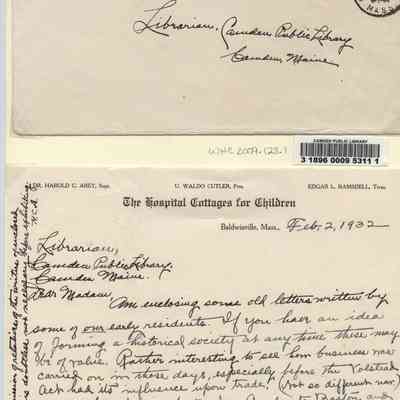 MASS
Librarian,
Camden Public Library
Camden Maine
WHC 2009.128.1
CAMDEN PUBLIC LIBRARY
3 1896 0009 5311 1
DR. HAROLD C. ARKY, Supt.
U. WALDO CUTLER, Pres.
EDGAR L. RAMSDELL, Treas.
The Hospital Cottages for Children
Baldwinville, Mass., Feb. 2, 1932
Librarian,
Camden Public Library.
Camden Maine.
Dear Madam:
Am enclosing some old letters written by
some of our early residents. If you have an idea
of forming a historical society at any time these may
be of value. Rather interesting to see how business was
carried on in those days, especially before the Volstead
Act had its influence upon trade. (Not so different now)
to Boston and
of relatives of the writer
so please not necessary before exhibiting
H.C.A.